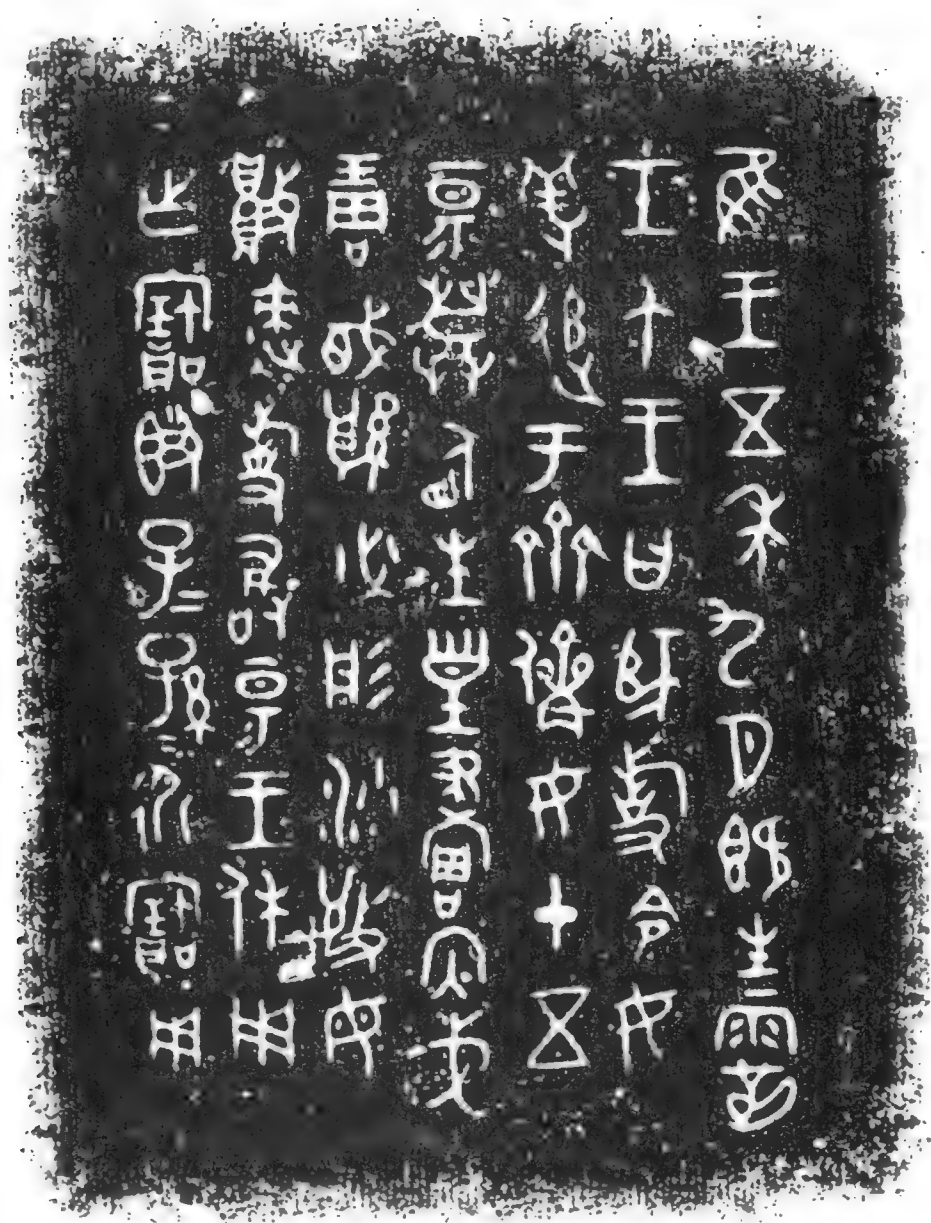 隹王五年九月既生霸
壬午王曰師旋令女
羞追于齊儕女十五
昜登盾生皇畫内戈
琱㦸必彤沙敬毋
敗速旋敢昜王休用
乍寶簋子=孫=永寶用